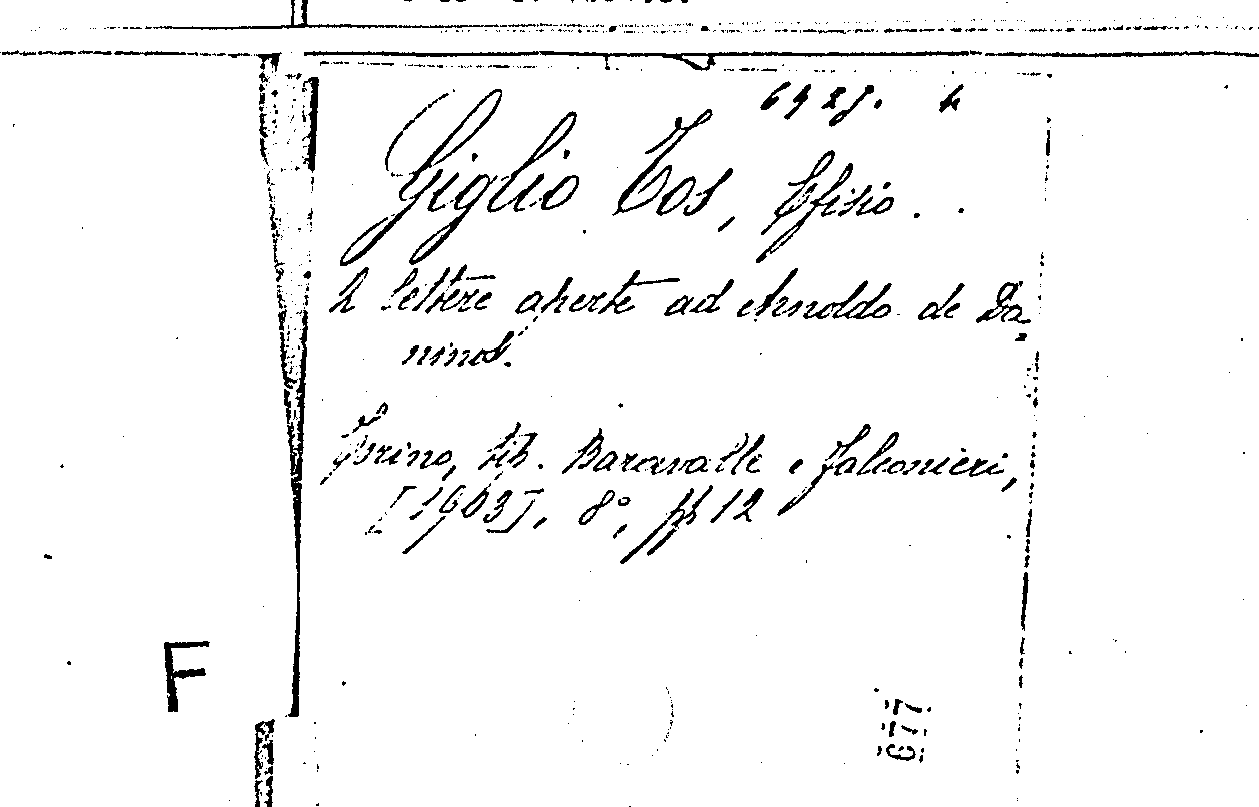 Giglio Tos, Efisio.
2 lettere aperte ad Arnoldo de Da-
ninos.
Torino, tip. Baravalle e Falconieri,
[1903], 8°, pp 12
F
677